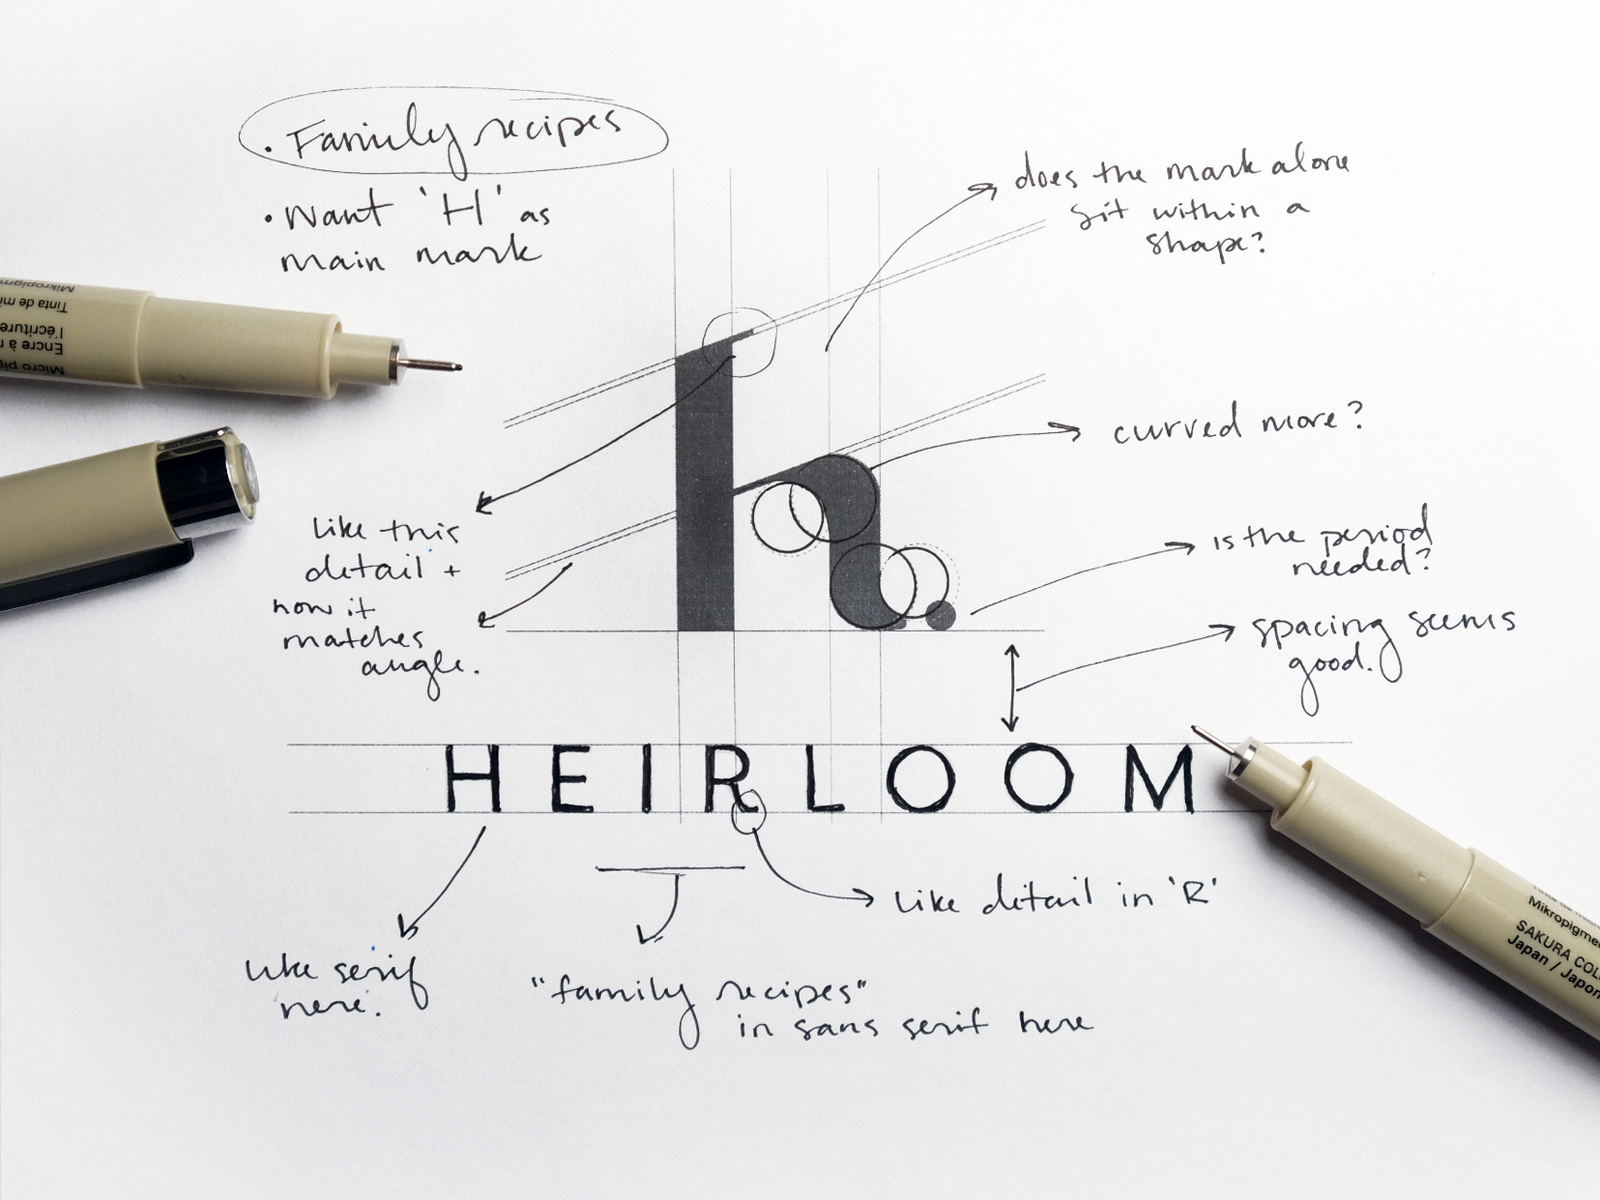 • Family recipes
• Want 'H' as
main mark
does the mark alone
sit within a
shape?
curved more?
like this
detail +
how it
matches
angle.
is the period
needed?
spacing seems
good.
h.
HEIRLOOM
like detail in 'R'
like serif
here.
"family recipes"
in sans serif here
Micro pig
Encre à
l'écriture
Tinta de mi
Mikropigm
Mikropigme
SAKURA COL
Japan / Japon